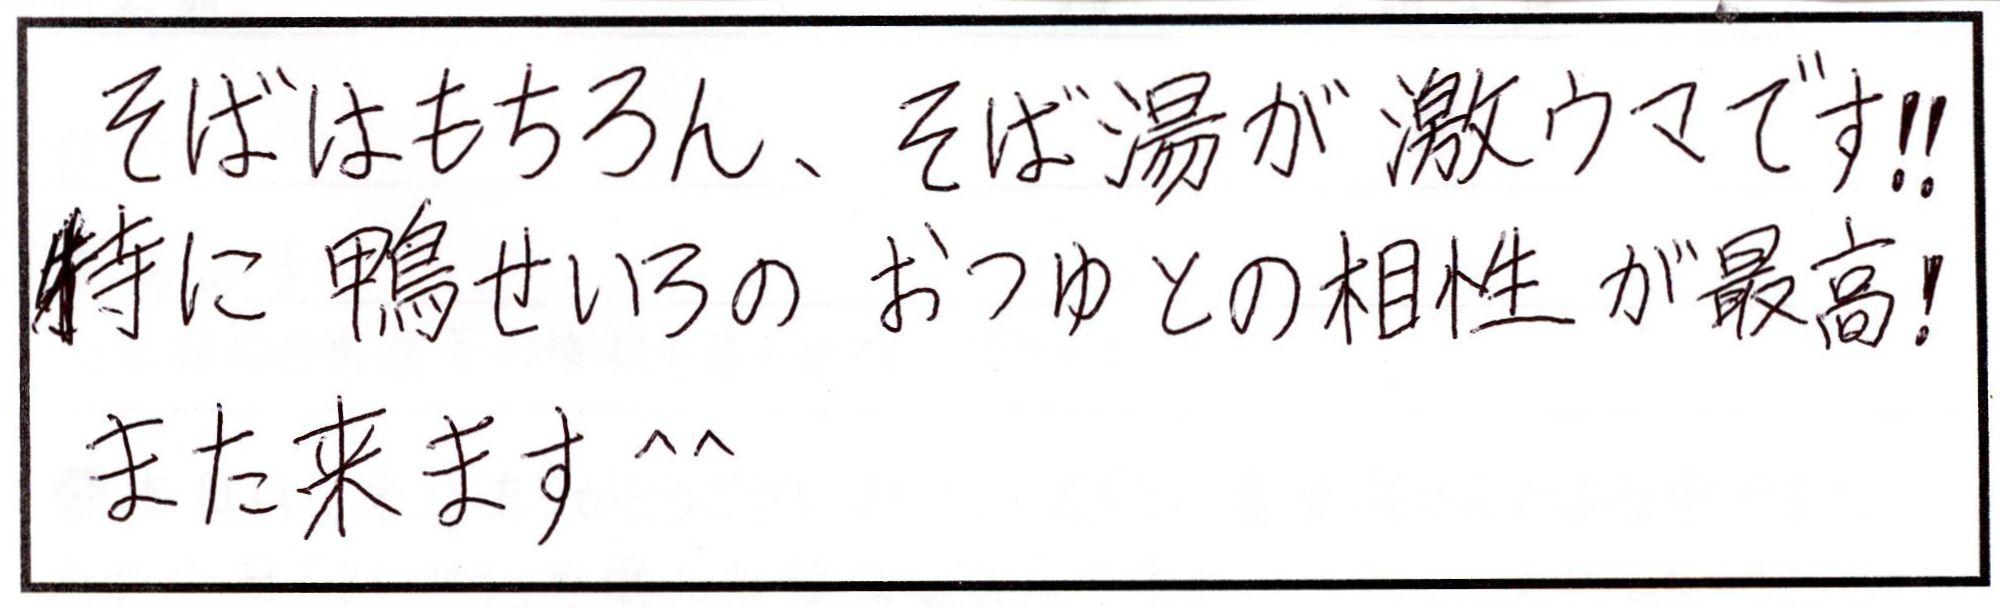 そばはもちろん、そば湯が激ウマです!!
特に鴨せいろのおつゆとの相性が最高!
また来ます^^